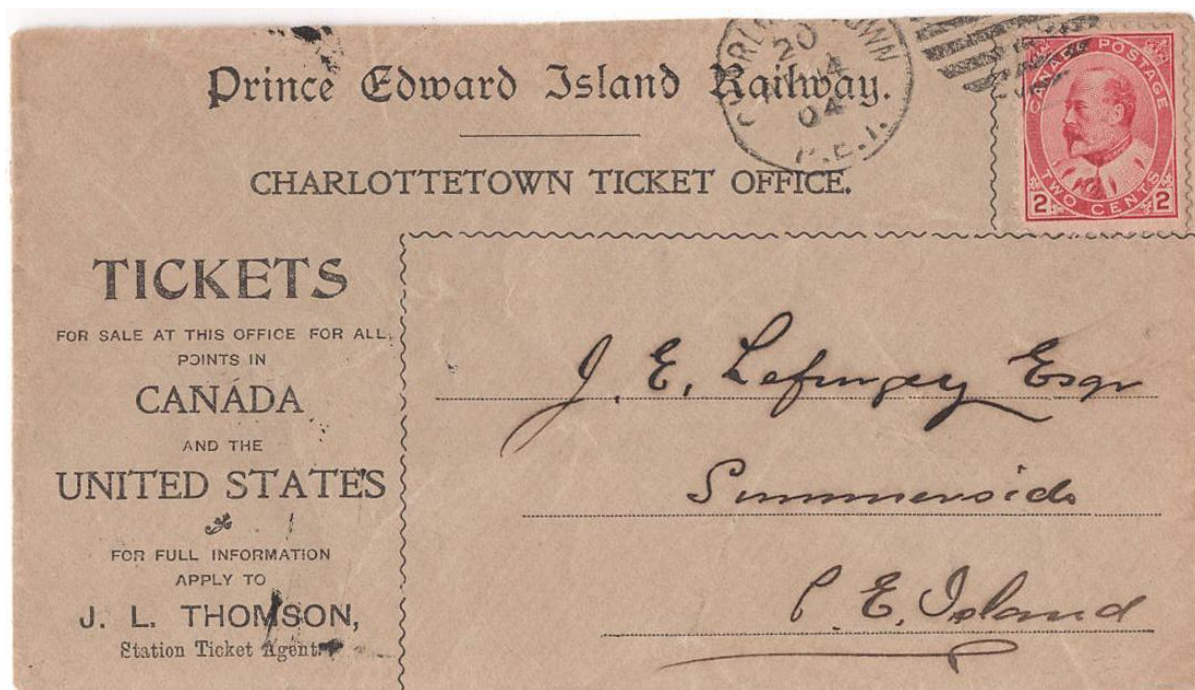 Prince Edward Island Railway.
CHARLOTTETOWN TICKET OFFICE.
20
14
04
P.E.I.
CANADA POSTAGE
2 TWO CENTS 2
TICKETS
FOR SALE AT THIS OFFICE FOR ALL
POINTS IN
CANADA
AND THE
UNITED STATES
FOR FULL INFORMATION
APPLY TO
J. L. THOMSON,
Station Ticket Agent.
J. E. Lefurgey Esqr
Summerside
P. E. Island